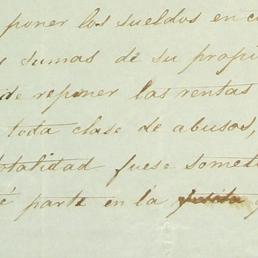 poner los sueldos en c
sumas de su propi
de reponer las rentas
toda clase de abusos,
totalidad fuese somet
é parte en la